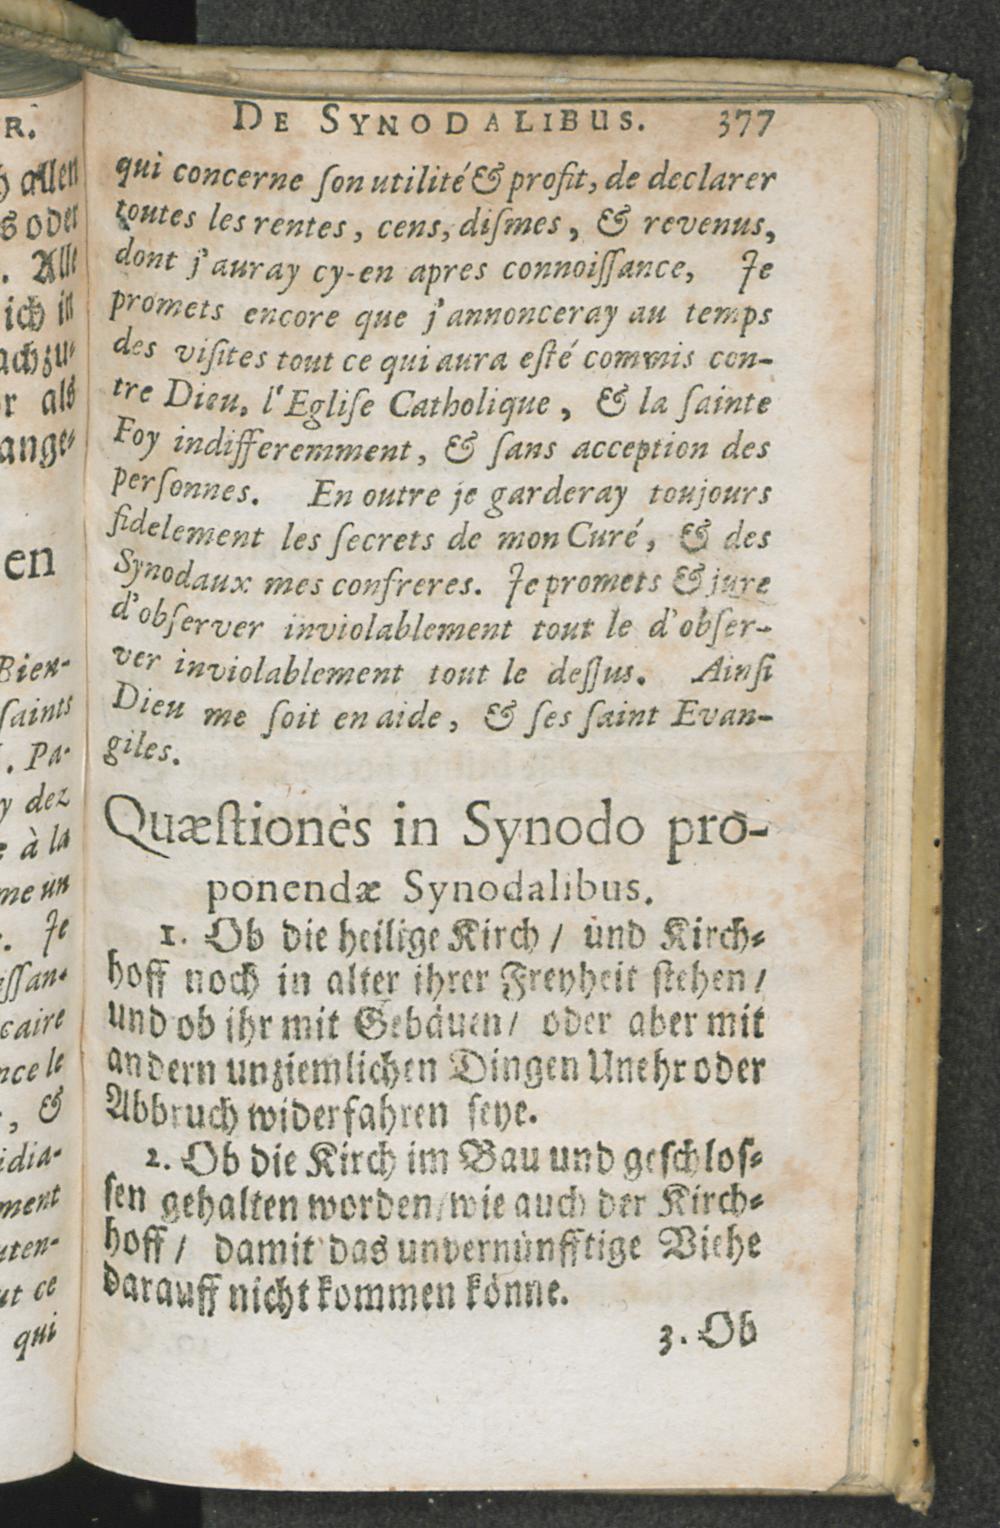 DE SYNODALIBUS. 377
qui concerne ſon utilité & profit, de declarer
toutes les rentes, cens, diſmes, & revenus,
dont j'auray cy-en apres connoiſſance, Je
promets encore que j'annonceray au temps
des viſites tout ce qui aura eſté commis con-
tre Dieu, l'Egliſe Catholique, & la ſainte
Foy indifferemment, & ſans acception des
perſonnes. En outre je garderay toujours
fidelement les ſecrets de mon Curé, & des
Synodaux mes confreres. Je promets & jure
d'obſerver inviolablement tout le d'obſer-
ver inviolablement tout le deſſus. Ainſi
Dieu me ſoit en aide, & ſes ſaint Evan-
giles.
Quæſtionès in Synodo pro-
ponendæ Synodalibus.
1. Ob die heilige Kirch / und Kirch-
hoff noch in alter ihrer Freyheit ſtehen /
und ob ihr mit Gebäuen / oder aber mit
andern unziemlichen Dingen Unehr oder
Abbruch widerfahren ſeye.
2. Ob die Kirch im Bau und geſchloſ-
ſen gehalten worden / wie auch der Kirch-
hoff / damit das unvernünfftige Viehe
darauff nicht kommen könne.
3. Ob
R.
allen
s oder
. Alle
ich in
achzu-
r als
ange-
en
Bien-
ſaints
. Pa-
y dez
e à la
me un
. Je
eſſan-
caire
nce le
, &
idia-
ment
uten-
ut ce
qui